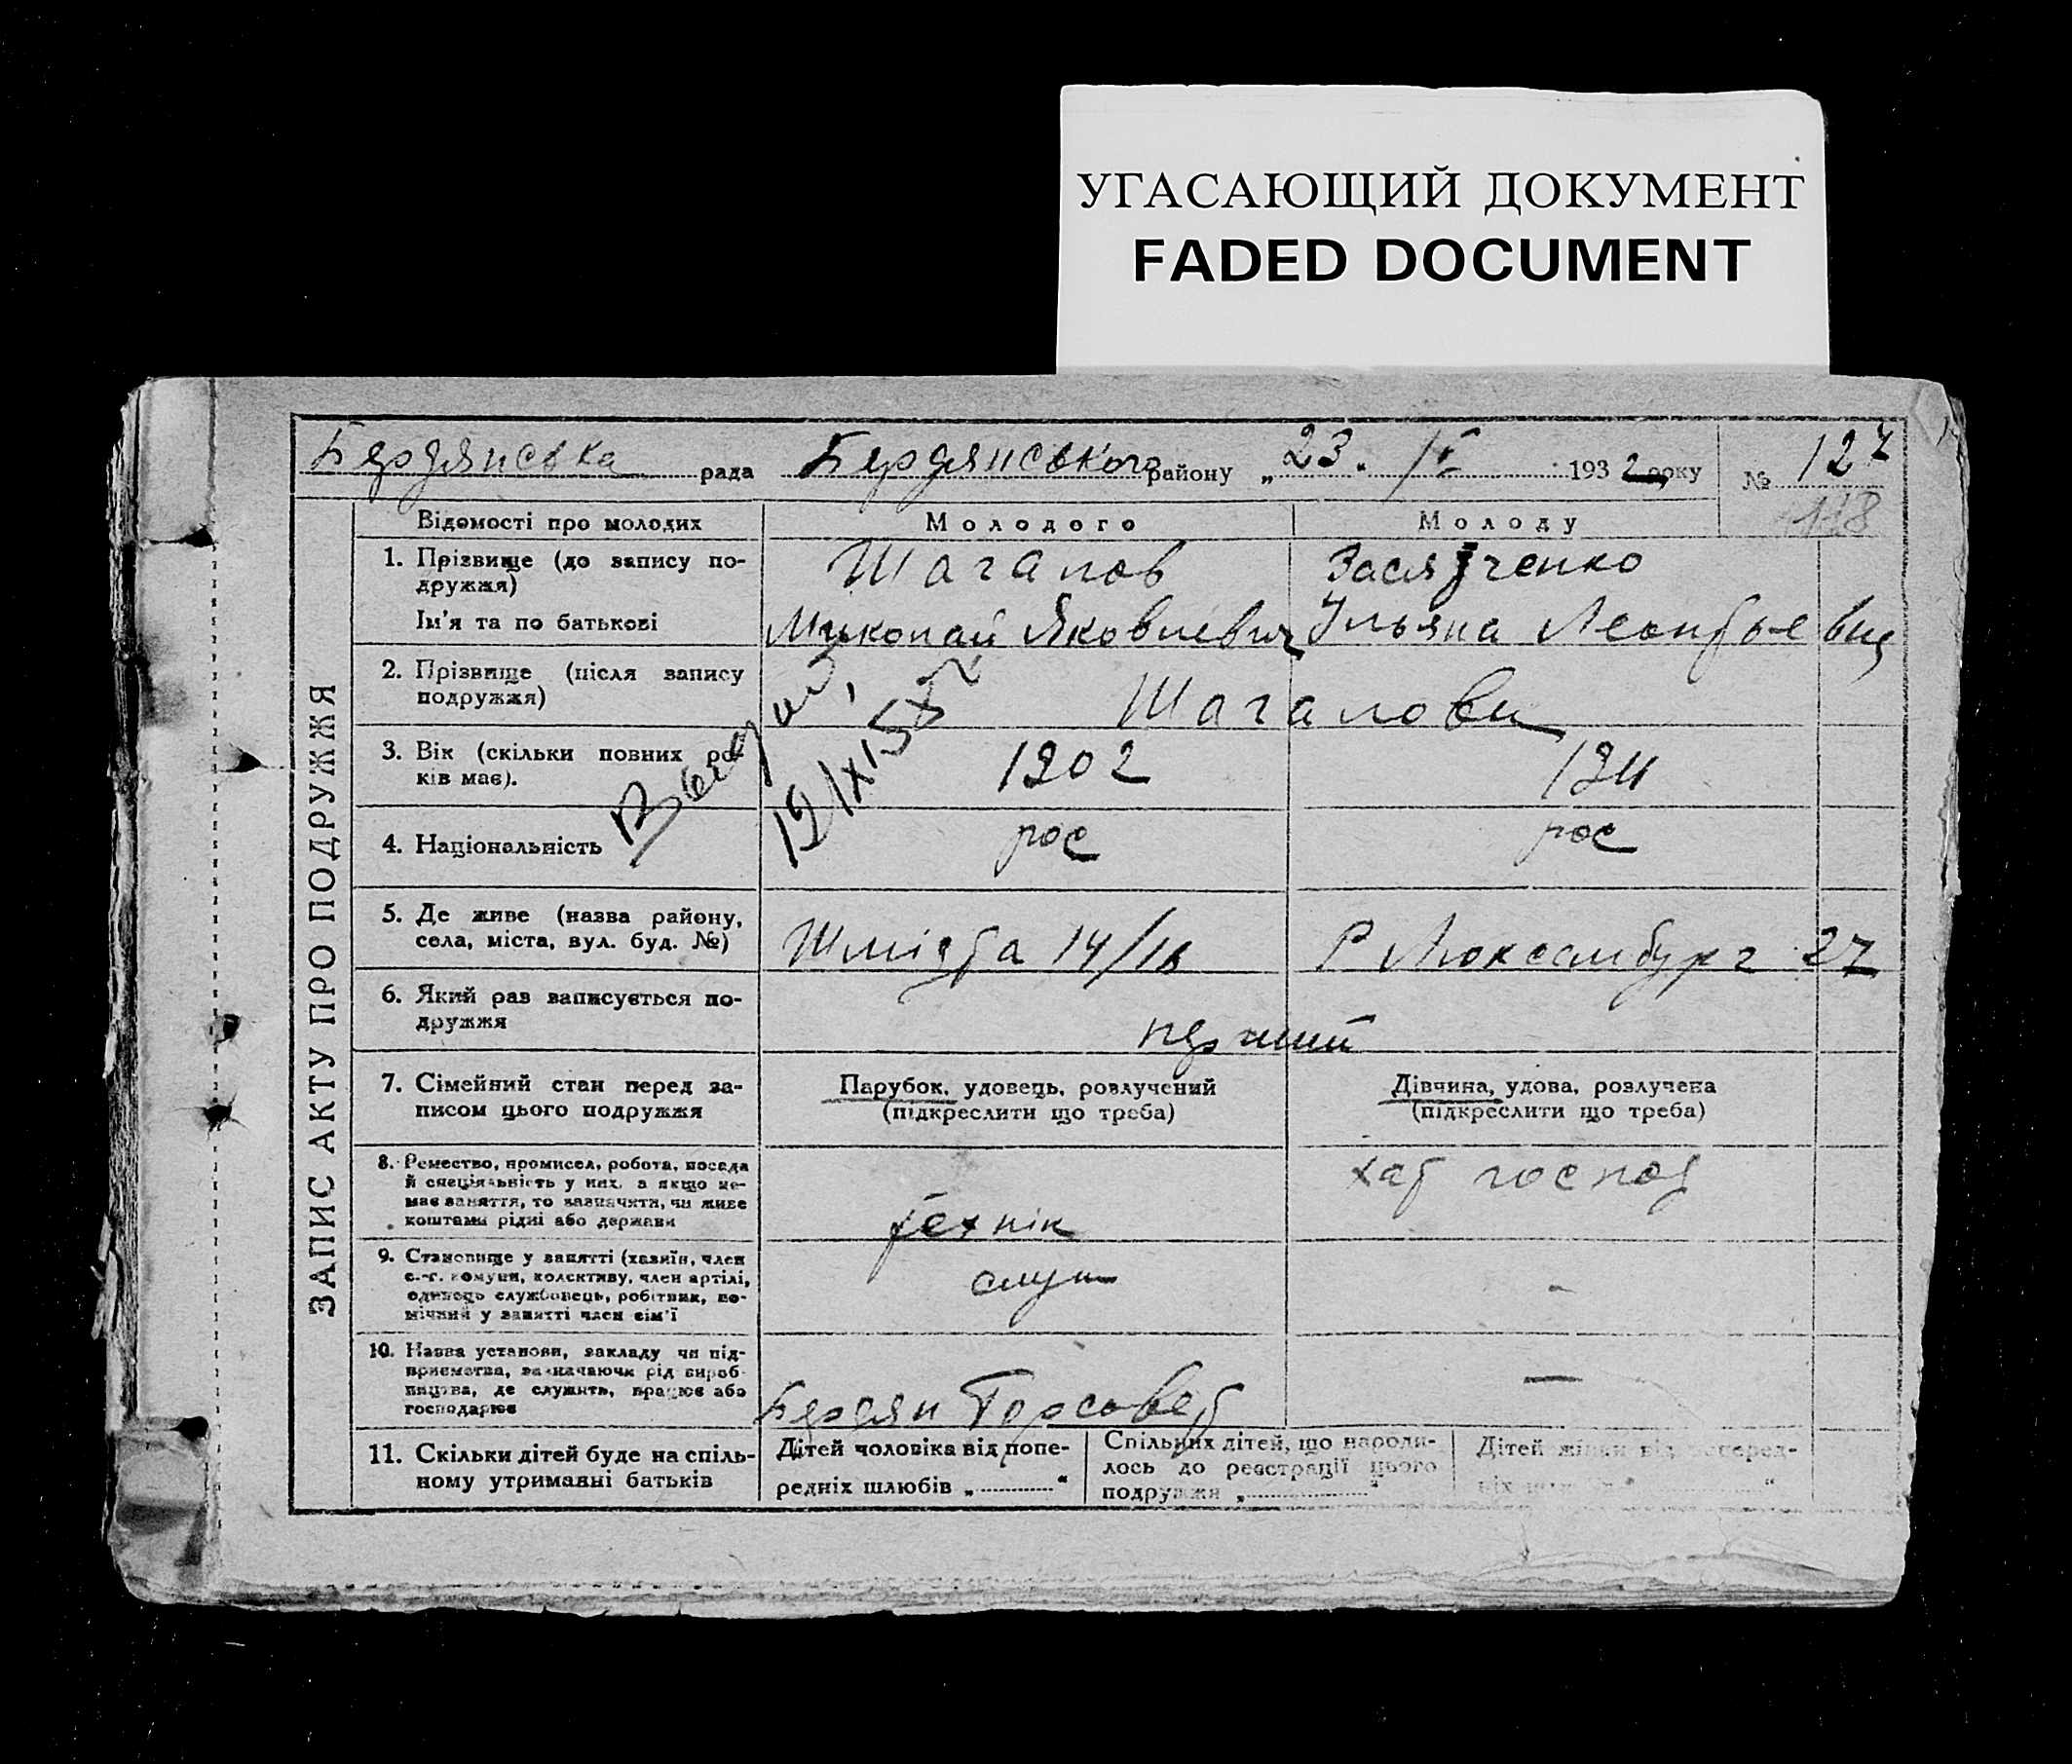 УГАСАЮЩИЙ ДОКУМЕНТ
FADED DOCUMENT
Бердянська рада Бердянського району „23. IV 1932 року № 127
118
ЗАПИС АКТУ ПРО ПОДРУЖЖЯ
Відомості про молодих
Молодого
Молоду
1. Прізвище (до запису по-
дружжя)
Ім'я та по батькові
Шагапов
Миколай Яковлевич
Ульяна Леонтьевич
2. Прізвище (після запису
подружжя)
Шагапови
3. Вік (скільки повних ро-
ків має).
1902
1911
4. Національність
рос
рос
5. Де живе (назва району,
села, міста, вул. буд. №)
Шмідта 14/16
Р Люксембург 27
6. Який раз записується по-
дружжя
перший
7. Сімейний стан перед за-
писом цього подружжя
Парубок, удовець, розлучений
(підкреслити що треба)
Дівчина, удова, розлучена
(підкреслити що треба)
8. Ремество, промисел, робота, посада
й спеціяльність у них, а якщо не-
має заняття, то зазначити, чи живе
коштами рідні або держави
технік
хат господ
9. Становище у занятті (хазяїн, член
с.-г. комуни, колективу, член артілі,
одинець службовець, робітник, по-
мічний у занятті член сім'ї
служ
-
10. Назва установи, закладу чи під-
приємства, зазначаючи рід вироб-
ництва, де служить, працює або
господарює
Бердян Горсовет
—
11. Скільки дітей буде на спіль-
ному утриманні батьків
Дітей чоловіка від попе-
редніх шлюбів „ “
Спільних дітей, що народи-
лось до реєстрації цього
подружжя „ “
Дітей жінки від поперед-
ніх